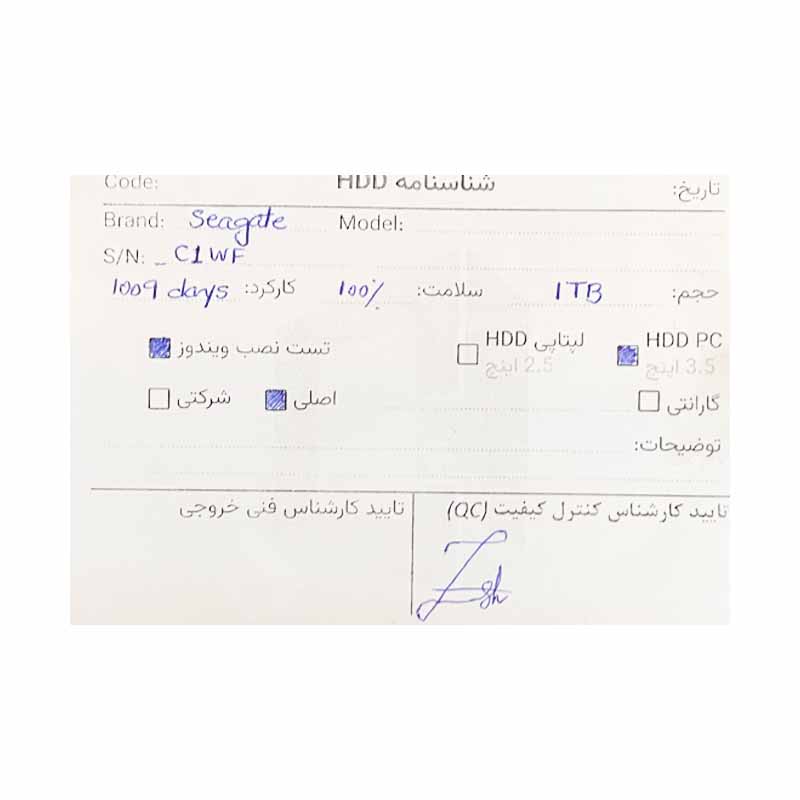 تاریخ: شناسنامه HDD Code:
Brand: Seagate Model:
S/N: _ C1WF
حجم: 1TB سلامت: 100% کارکرد: 1009 days
HDD PC لپتاپی HDD تست نصب ویندوز
3.5 اینچ 2.5 اینچ
گارانتی اصلی شرکتی
توضیحات:
تایید کارشناس کنترل کیفیت (QC) تایید کارشناس فنی خروجی